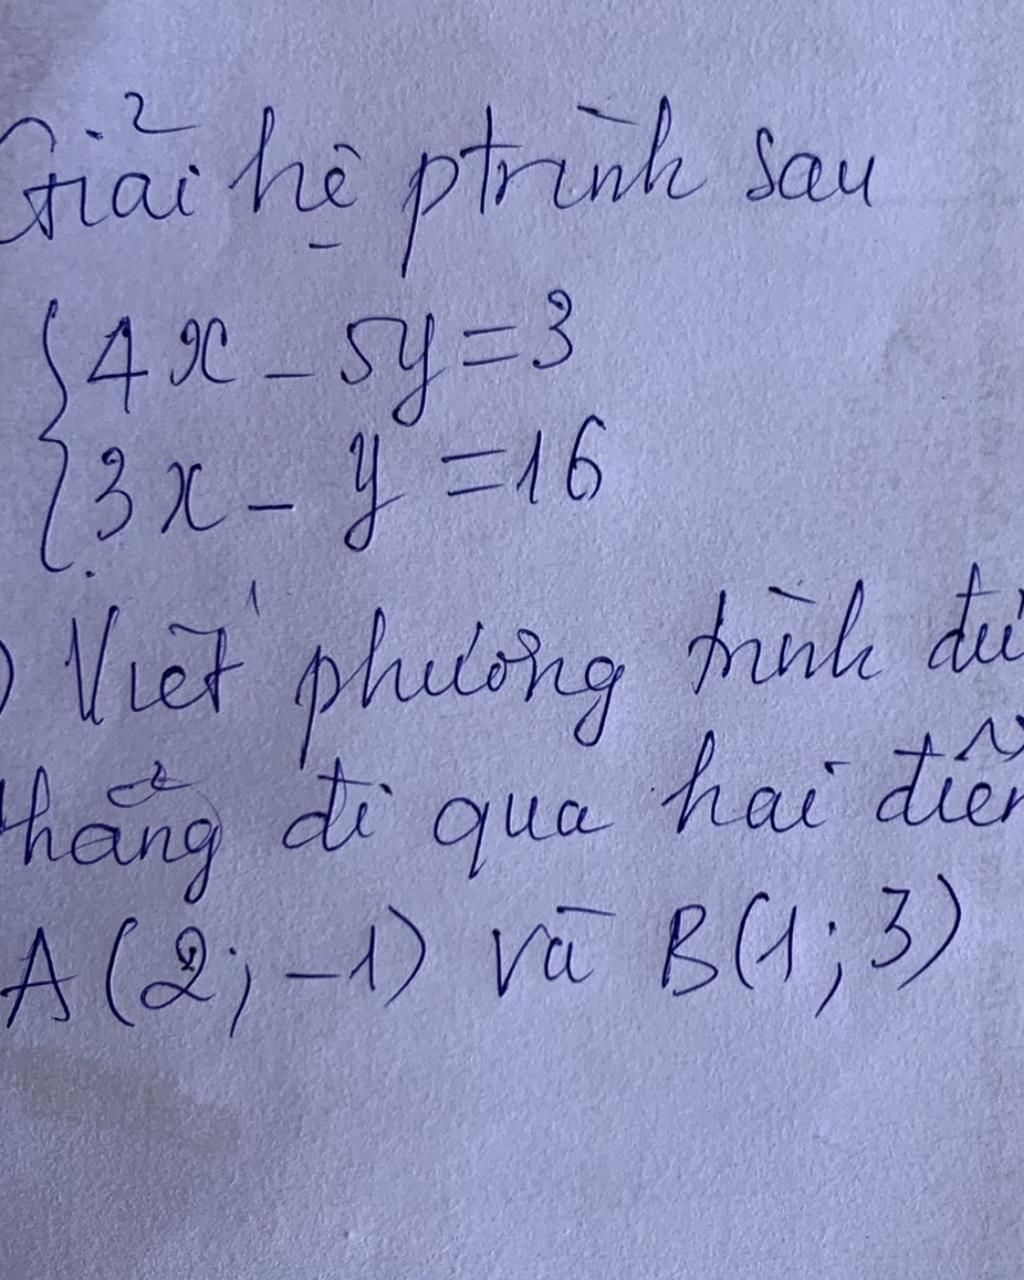 Giải hệ ptrình sau
{4x - 5y = 3
{3x - y = 16
) Viết phương trình đư
thẳng đi qua hai điểm
A(2; -1) và B(1; 3)